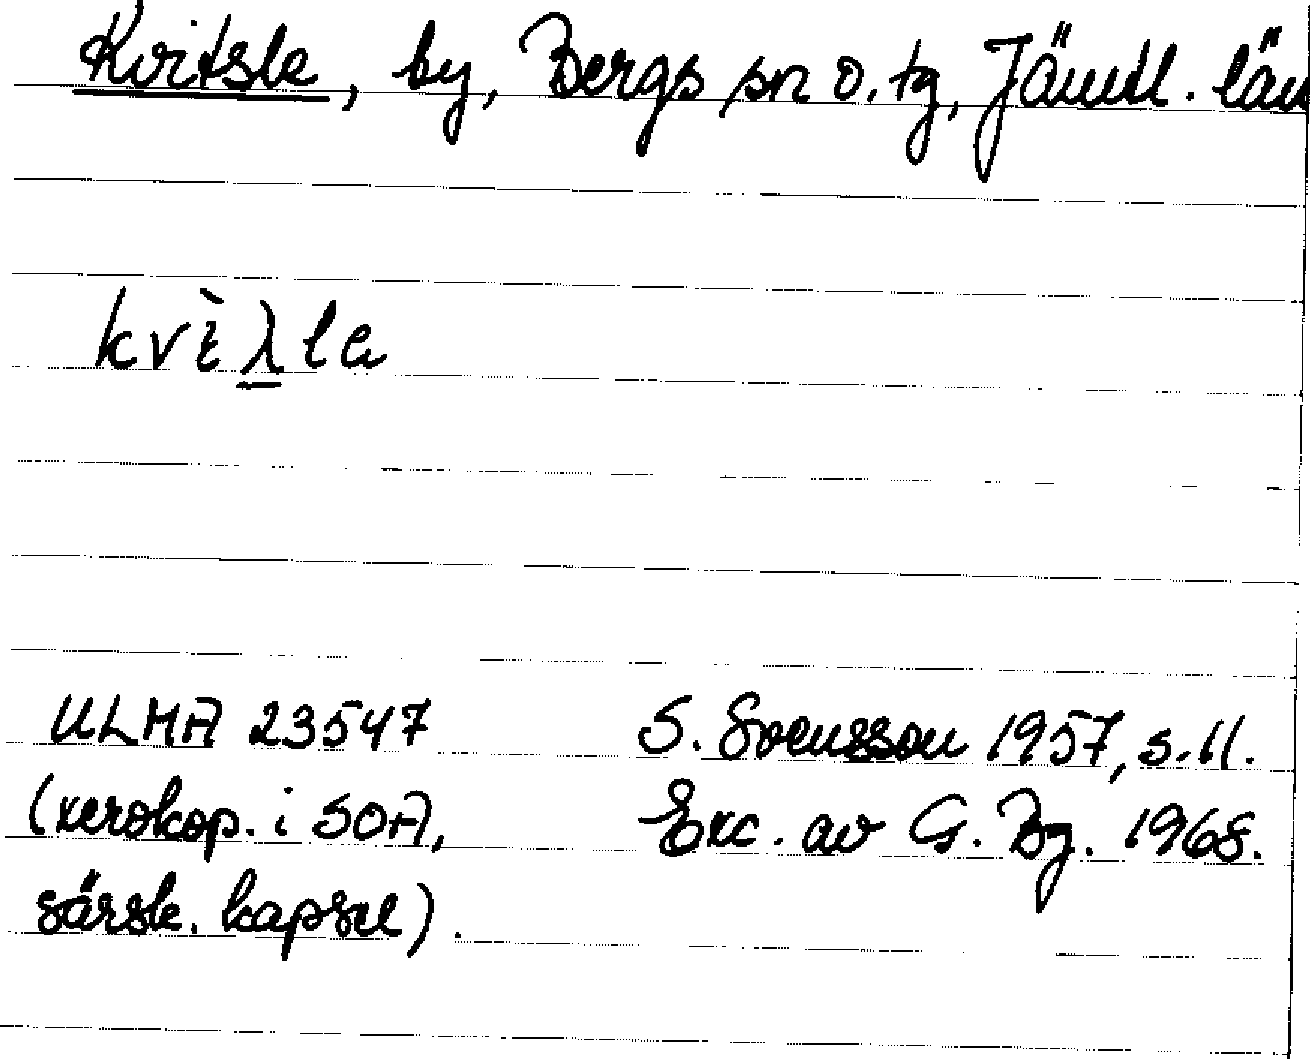 Kvitsle, by, Bergs sn o. tg, Jämtl. län
kvὶλ̱la
ULMA 23547 S. Svensson 1957, s. 11.
(xerokop. i SOA, Exc. av G. Bg. 1968.
särsk. kapsel).